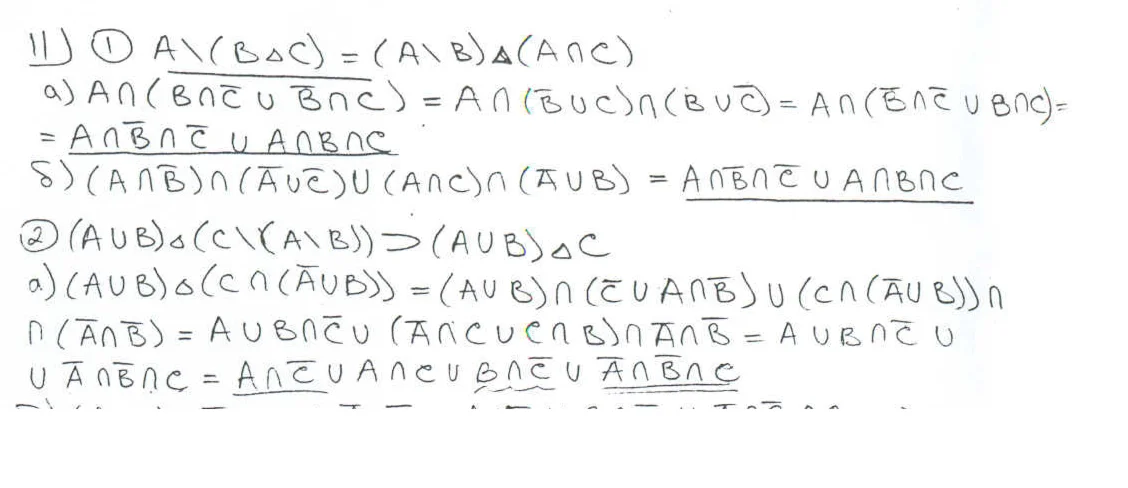 11) ① A\(B△C) = (A\B)△(A∩C)
а) A∩(\overline{B∩C̅ ∪ B̅∩C}) = A∩(B̅∪C)∩(B∪C̅) = A∩(B̅∩C̅ ∪ B∩C)=
= A∩B̅∩C̅ ∪ A∩B∩C
б) (A∩B̅)∩(A̅∪C̅)∪(A∩C)∩(A̅∪B) = A∩B̅∩C̅ ∪ A∩B∩C
② (A∪B)△(C\(A\B))⊃(A∪B)△C
а) (A∪B)△(C∩(A̅∪B)) = (A∪B)∩(C̅∪A∩B̅)∪(C∩(A̅∪B))∩
∩(A̅∩B̅) = A∪B∩C̅∪(A̅∩C∪C∩B)∩A̅∩B̅ = A∪B∩C̅∪
∪A̅∩B̅∩C = A∩C̅∪A∩C∪B∩C̅∪A̅∩B̅∩C